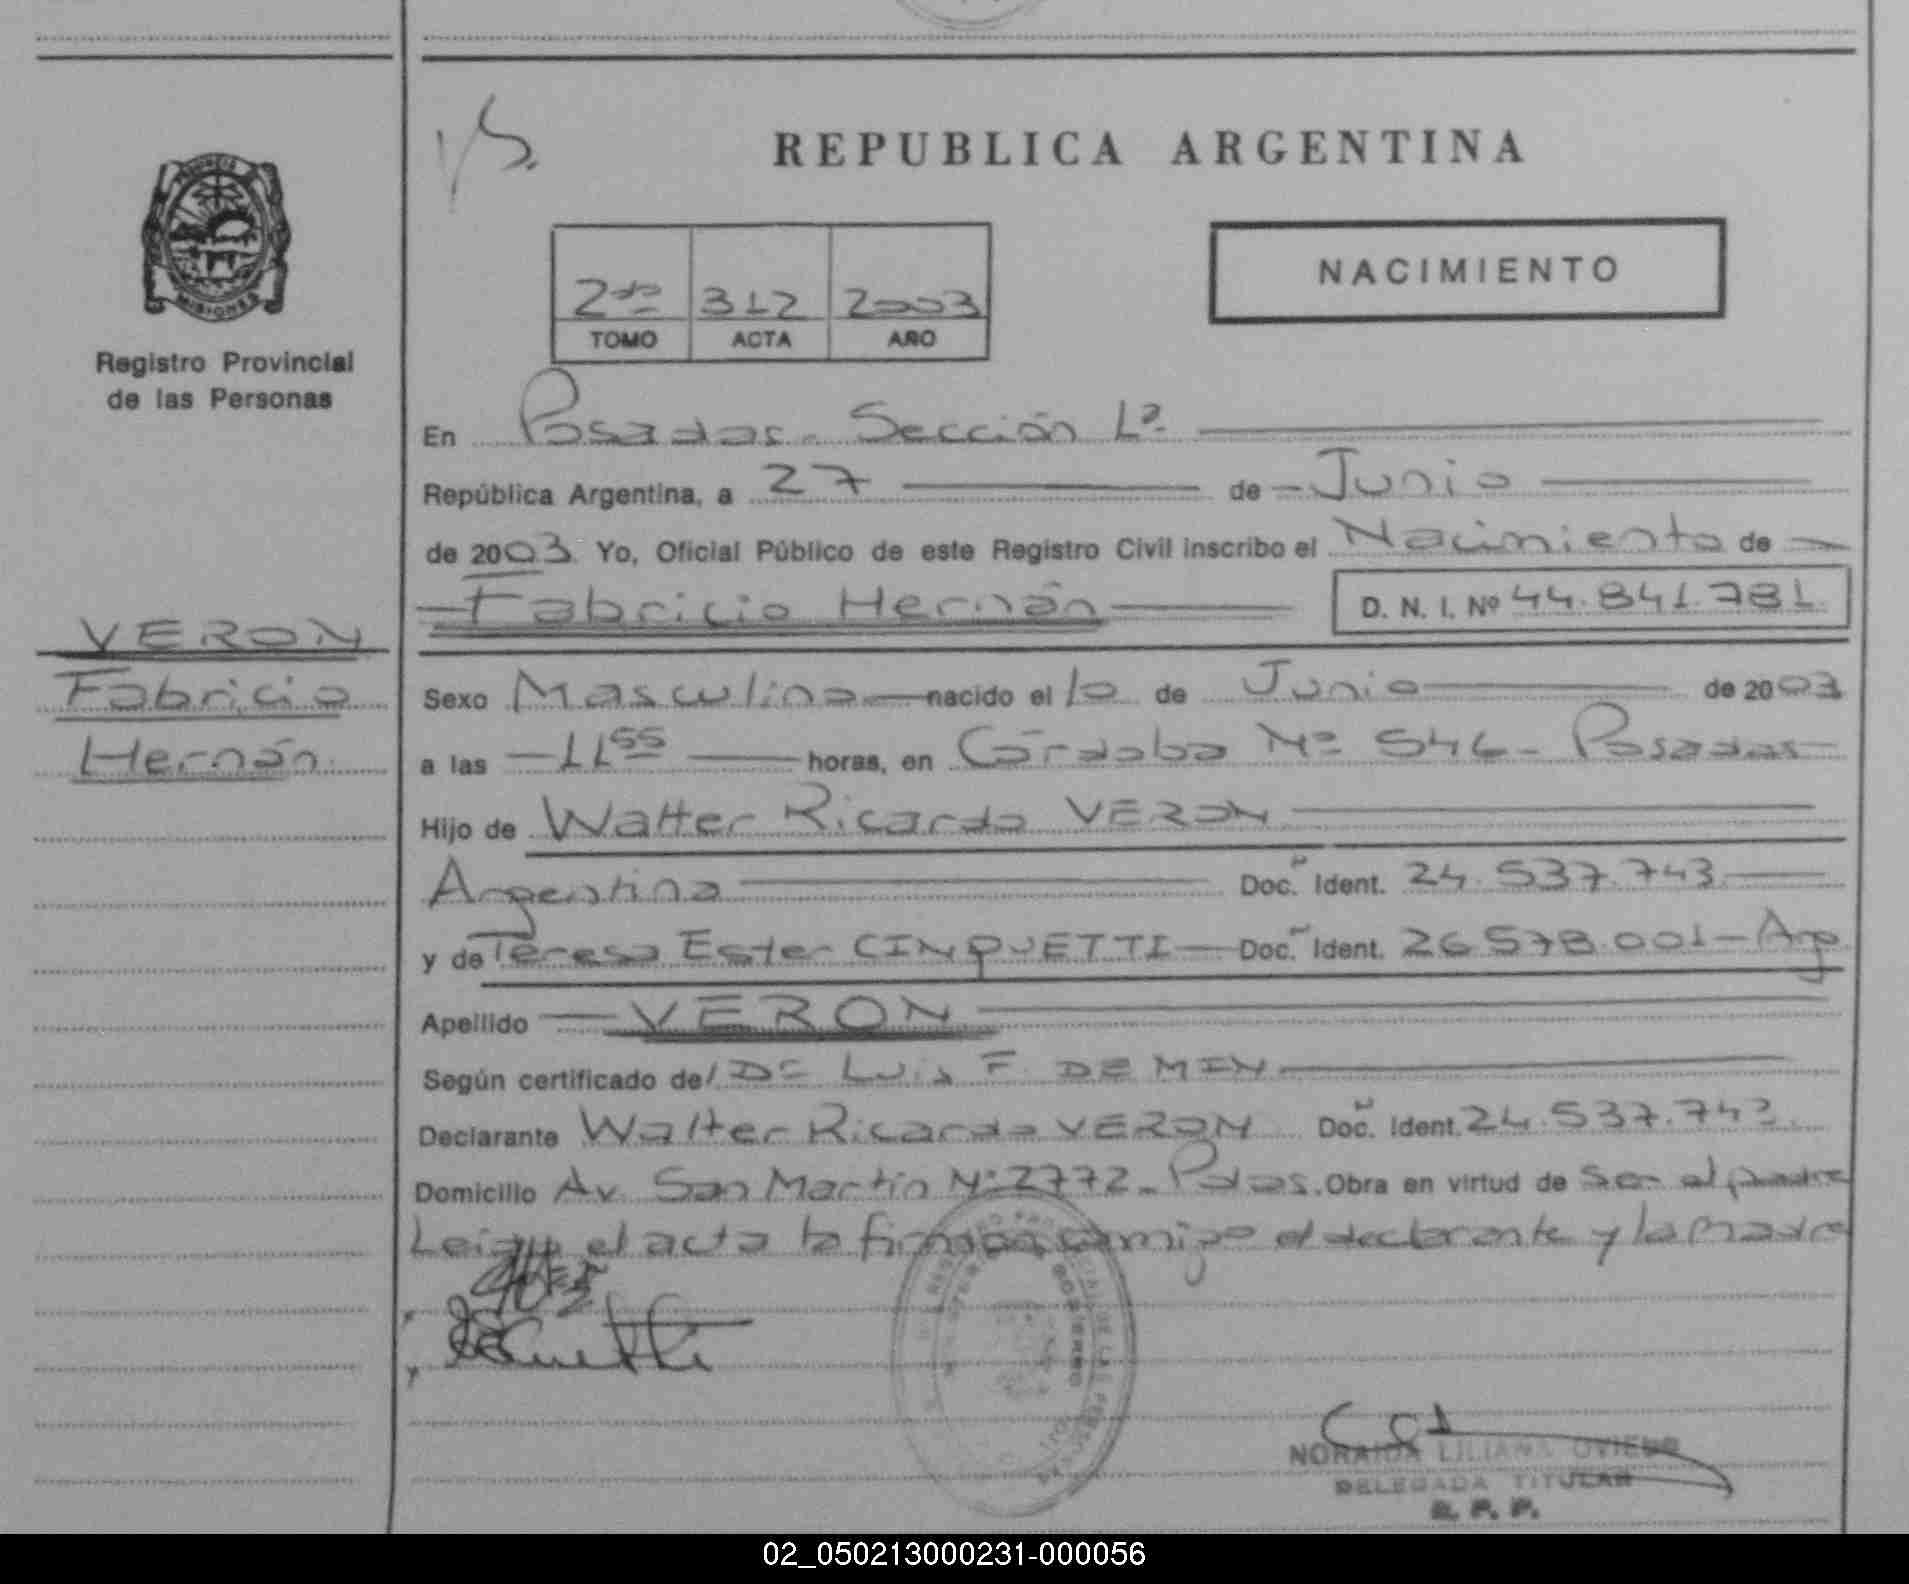 REPUBLICA ARGENTINA
PROVINCIA
MISIONES
Registro Provincial
de las Personas
NACIMIENTO
2do 312 2003
TOMO ACTA AÑO
En Posadas - Sección 1ª
República Argentina, a 27 de Junio
de 2003 Yo, Oficial Público de este Registro Civil inscribo el Nacimiento de
Fabricio Hernán D. N. I. Nº 44.841.781
VERON
Fabricio
Hernán
Sexo Masculino nacido el 10 de Junio de 2003
a las 11 55 horas, en Córdoba Nº 546 - Posadas
Hijo de Walter Ricardo VERON
Argentina Doc. Ident. 24.537.743
y de Teresa Ester CINQUETTI Doc. Ident. 26.578.001 - Arg
Apellido VERON
Según certificado del Dr Luis F. DE MIN
Declarante Walter Ricardo VERON Doc. Ident. 24.537.743
Domicilio Av. San Martin Nº 2772 - Pdas. Obra en virtud de ser el padre
Leida el acta la firman conmigo el declarante y la madre
REGISTRO PROVINCIAL DE LAS PERSONAS
GOBIERNO
NORAIDA LILIANA OVIEDO
DELEGADA TITULAR
R. P. P.
02_050213000231-000056